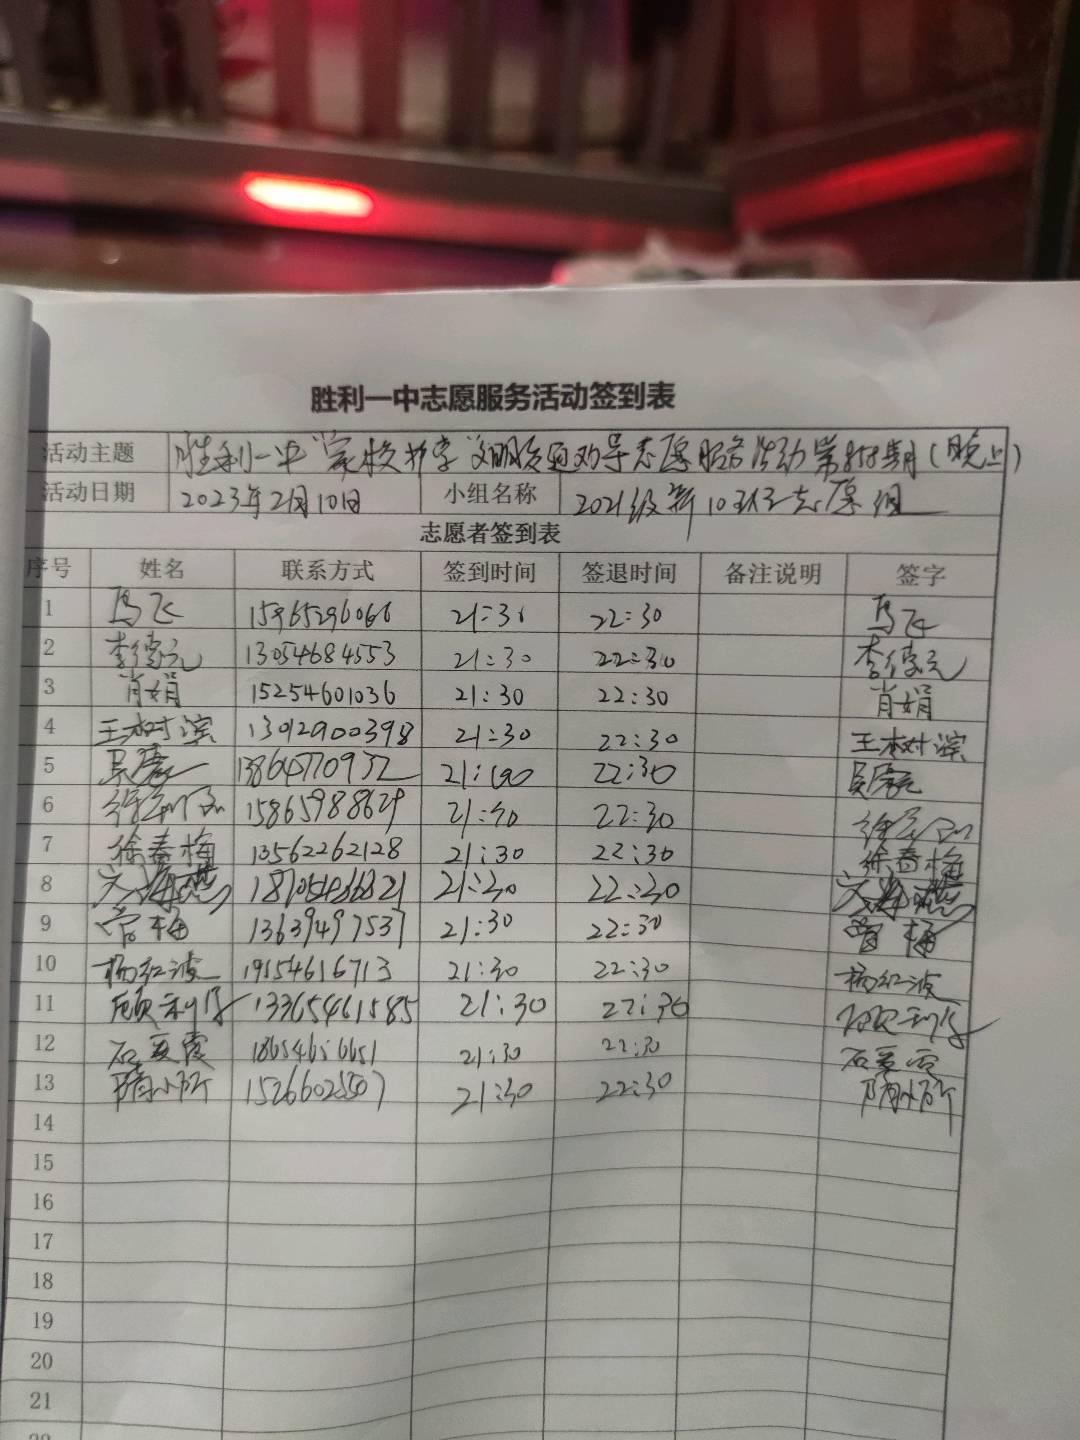 胜利一中志愿服务活动签到表
活动主题 胜利一中"家校共享"文明交通劝导志愿服务活动第858期(晚上)
活动日期 2023年2月10日 小组名称 2021级新10班志愿组
志愿者签到表
序号 姓名 联系方式 签到时间 签退时间 备注说明 签字
1 马飞 15965296066 21:30 22:30 马飞
2 李德元 13054684553 21:30 22:30 李德元
3 肖娟 15254601036 21:30 22:30 肖娟
4 王树滨 13012900398 21:30 22:30 王树滨
5 13864770932 22:30
6 徐 15865988629 22:30 徐
7 徐春梅 13562262128 21:30 22:30 徐春梅
8 21:30 22:30
9 管梅 13639497537 21:30 22:30 管梅
10 杨红波 19154616713 21:30 22:30 杨红波
11 顾利 13365461585 21:30 22:30 顾利
12 石爱霞 21:30 22:30 石爱霞
13 隋 21:30 22:30 隋
14
15
16
17
18
19
20
21
22